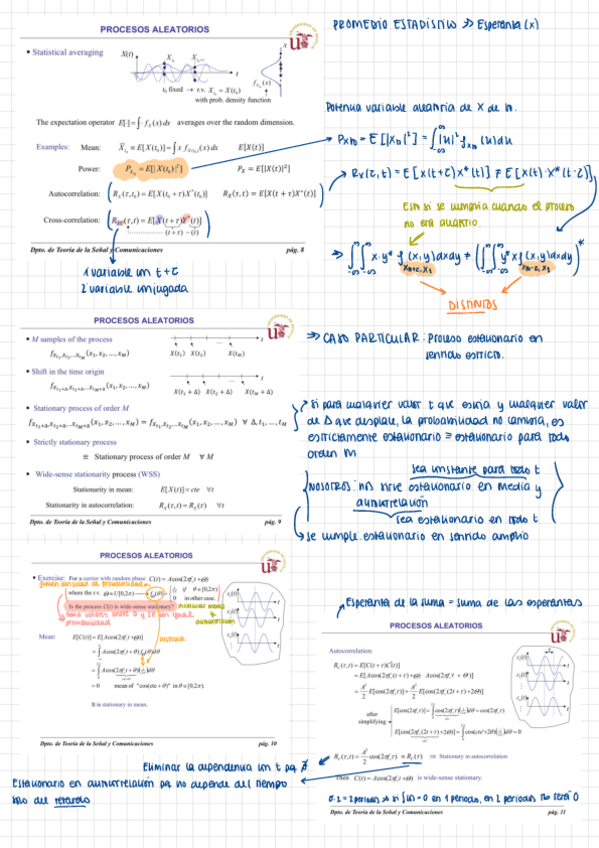 PROCESOS ALEATORIOS
• Statistical averaging
X(t)
t₀ fixed → r.v. X_{t₀} = X(t₀)
with prob. density function
The expectation operator E[·] = ∫ · f_X(x) dx averages over the random dimension.
Examples: Mean: X̄_{t₀} ≡ E[X(t₀)] = ∫ x f_{X(t₀)}(x) dx E[X(t)]
Power: P_{X_{t₀}} = E[|X(t₀)|²] P_X = E[|X(t)|²]
Autocorrelation: R_X(τ,t₀) = E[X(t₀+τ)X*(t₀)] R_X(τ,t) = E[X(t+τ)X*(t)]
Cross-correlation: R_{XY}(τ,t) = E[X(t+τ)Y*(t)]
(t+τ) − (t) = τ
Dpto. de Teoría de la Señal y Comunicaciones pág. 8
1ª variable en t+τ
2ª variable conjugada
PROMEDIO ESTADÍSTICO → Esperanza (x)
Potencia variable aleatoria de X de t₀.
R_X(τ,t) = E[X(t+τ)X*(t)] ≠ E[X(t)·X*(t-τ)]
no era aleatorio.
DISTINTOS
PROCESOS ALEATORIOS
• M samples of the process
f_{X_{t₁},X_{t₂},...,X_{t_M}}(x₁, x₂, ..., x_M)
X(t₁) X(t₂) X(t_M)
• Shift in the time origin
f_{X_{t₁+Δ},X_{t₂+Δ},...,X_{t_M+Δ}}(x₁, x₂, ..., x_M)
X(t₁+Δ) X(t₂+Δ) X(t_M+Δ)
• Stationary process of order M
f_{X_{t₁+Δ},X_{t₂+Δ},...,X_{t_M+Δ}}(x₁, x₂, ..., x_M) = f_{X_{t₁},X_{t₂},...,X_{t_M}}(x₁, x₂, ..., x_M) ∀ Δ, t₁, ..., t_M
• Strictly stationary process
≡ Stationary process of order M ∀ M
• Wide-sense stationarity process (WSS)
Stationarity in mean: E[X(t)] = cte ∀t
Stationarity in autocorrelation: R_X(τ,t) = R_X(τ) ∀t
Dpto. de Teoría de la Señal y Comunicaciones pág. 9
⇒ CASO PARTICULAR: Proceso estacionario en
sentido estricto.
Si para cualquier valor t que escoja y cualquier valor
de Δ que desplace, la probabilidad no cambia, es
estrictamente estacionario ≡ estacionario para todo
orden M
sea constante para todo t
NOSOTROS: nos sirve estacionario en media y
autocorrelación
sea estacionario en todo t
se cumple estacionario en sentido amplio
PROCESOS ALEATORIOS
• Exercise: For a carrier with random phase C(t) = A cos(2πf_c t+Θ)
where the r.v. Θ ∈ U[0,2π)
in other case.
Is the process C(t) is wide-sense stationary?
Mean: E[C(t)] = E[A cos(2πf_c t+Θ)]
= 0 mean of "cos(cte+θ)" in θ∈[0,2π).
It is stationary in mean.
Dpto. de Teoría de la Señal y Comunicaciones pág. 10
Esperanza de la suma = suma de las esperanzas
PROCESOS ALEATORIOS
Autocorrelation:
R_C(τ,t) = E[C(t+τ)C(t)]
= E[A cos(2πf_c(t+τ)+Θ) A cos(2πf_c t+Θ)]
= A²/2 E[cos(2πf_c τ)] + A²/2 E[cos(2πf_c(2t+τ)+2Θ)]
after
simplifying
R_C(τ,t) = A²/2 cos(2πf_c τ) = R_C(τ) ⇒ Stationary in autocorrelation
Then C(t) = A cos(2πf_c t+Θ) is wide-sense stationary.
Dpto. de Teoría de la Señal y Comunicaciones pág. 11
Eliminar la dependencia con t pq ∄
Estacionario en autocorrelación pq no depende del tiempo
sino del retardo